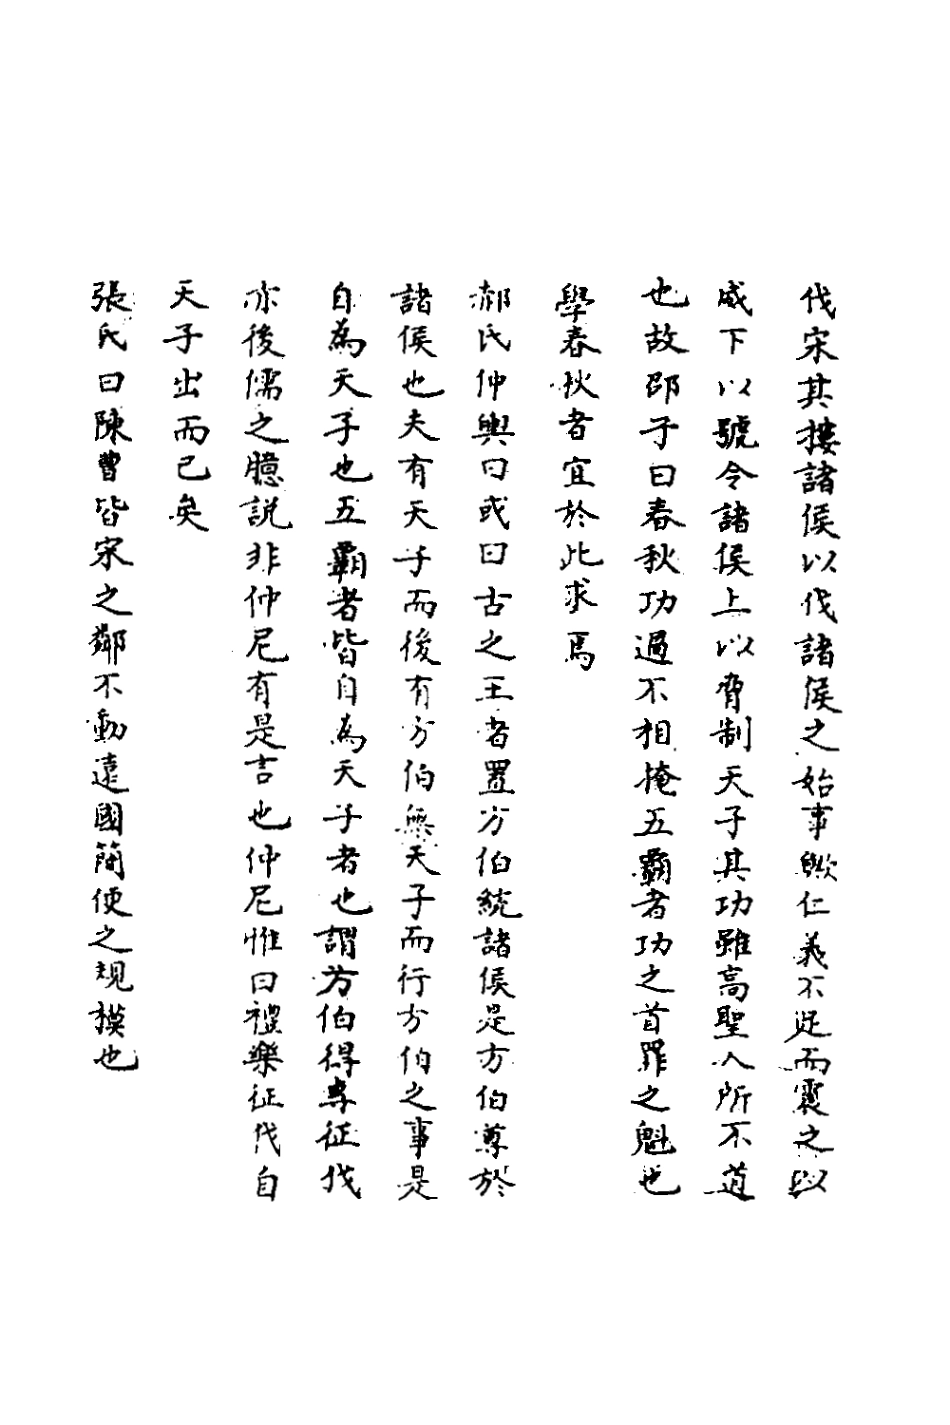 伐宋其摟諸侯以伐諸侯之始事歟仁義不足而震之以
威下以號令諸侯上以脅制天子其功雖高聖人所不道
也故邵子曰春秋功過不相掩五霸者功之首罪之魁也
學春秋者宜於此求焉
郝氏仲輿曰或曰古之王者置方伯統諸侯是方伯尊於
諸侯也夫有天子而後有方伯無天子而行方伯之事是
自為天子也五霸者皆自為天子者也謂方伯得專征伐
亦後儒之臆説非仲尼有是言也仲尼惟曰禮樂征伐自
天子出而已矣
張氏曰陳曹皆宋之鄰不動遠國簡便之規模也